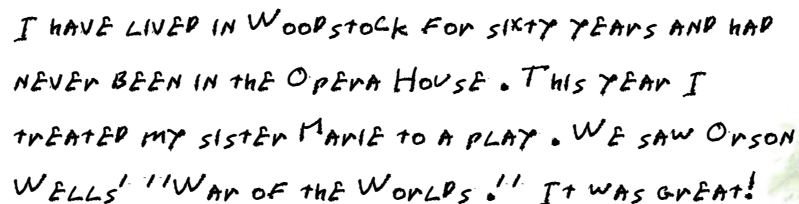 I HAVE LIVED IN WOODSTOCK FOR SIXTY YEARS AND HAD
NEVER BEEN IN THE OPERA HOUSE. THIS YEAR I
TREATED MY SISTER MARIE TO A PLAY. WE SAW ORSON
WELLS' "WAR OF THE WORLDS." IT WAS GREAT!